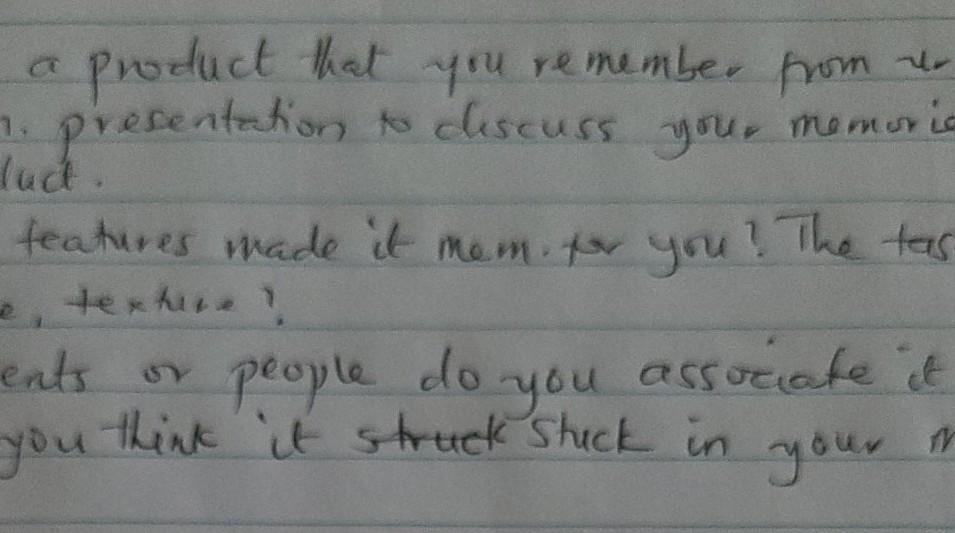 a product that you remember from
n. presentation to discuss your memorie
duct.
features made it mem. for you? The tas
e, texture?
ents or people do you associate it
you think it struck stuck in your m